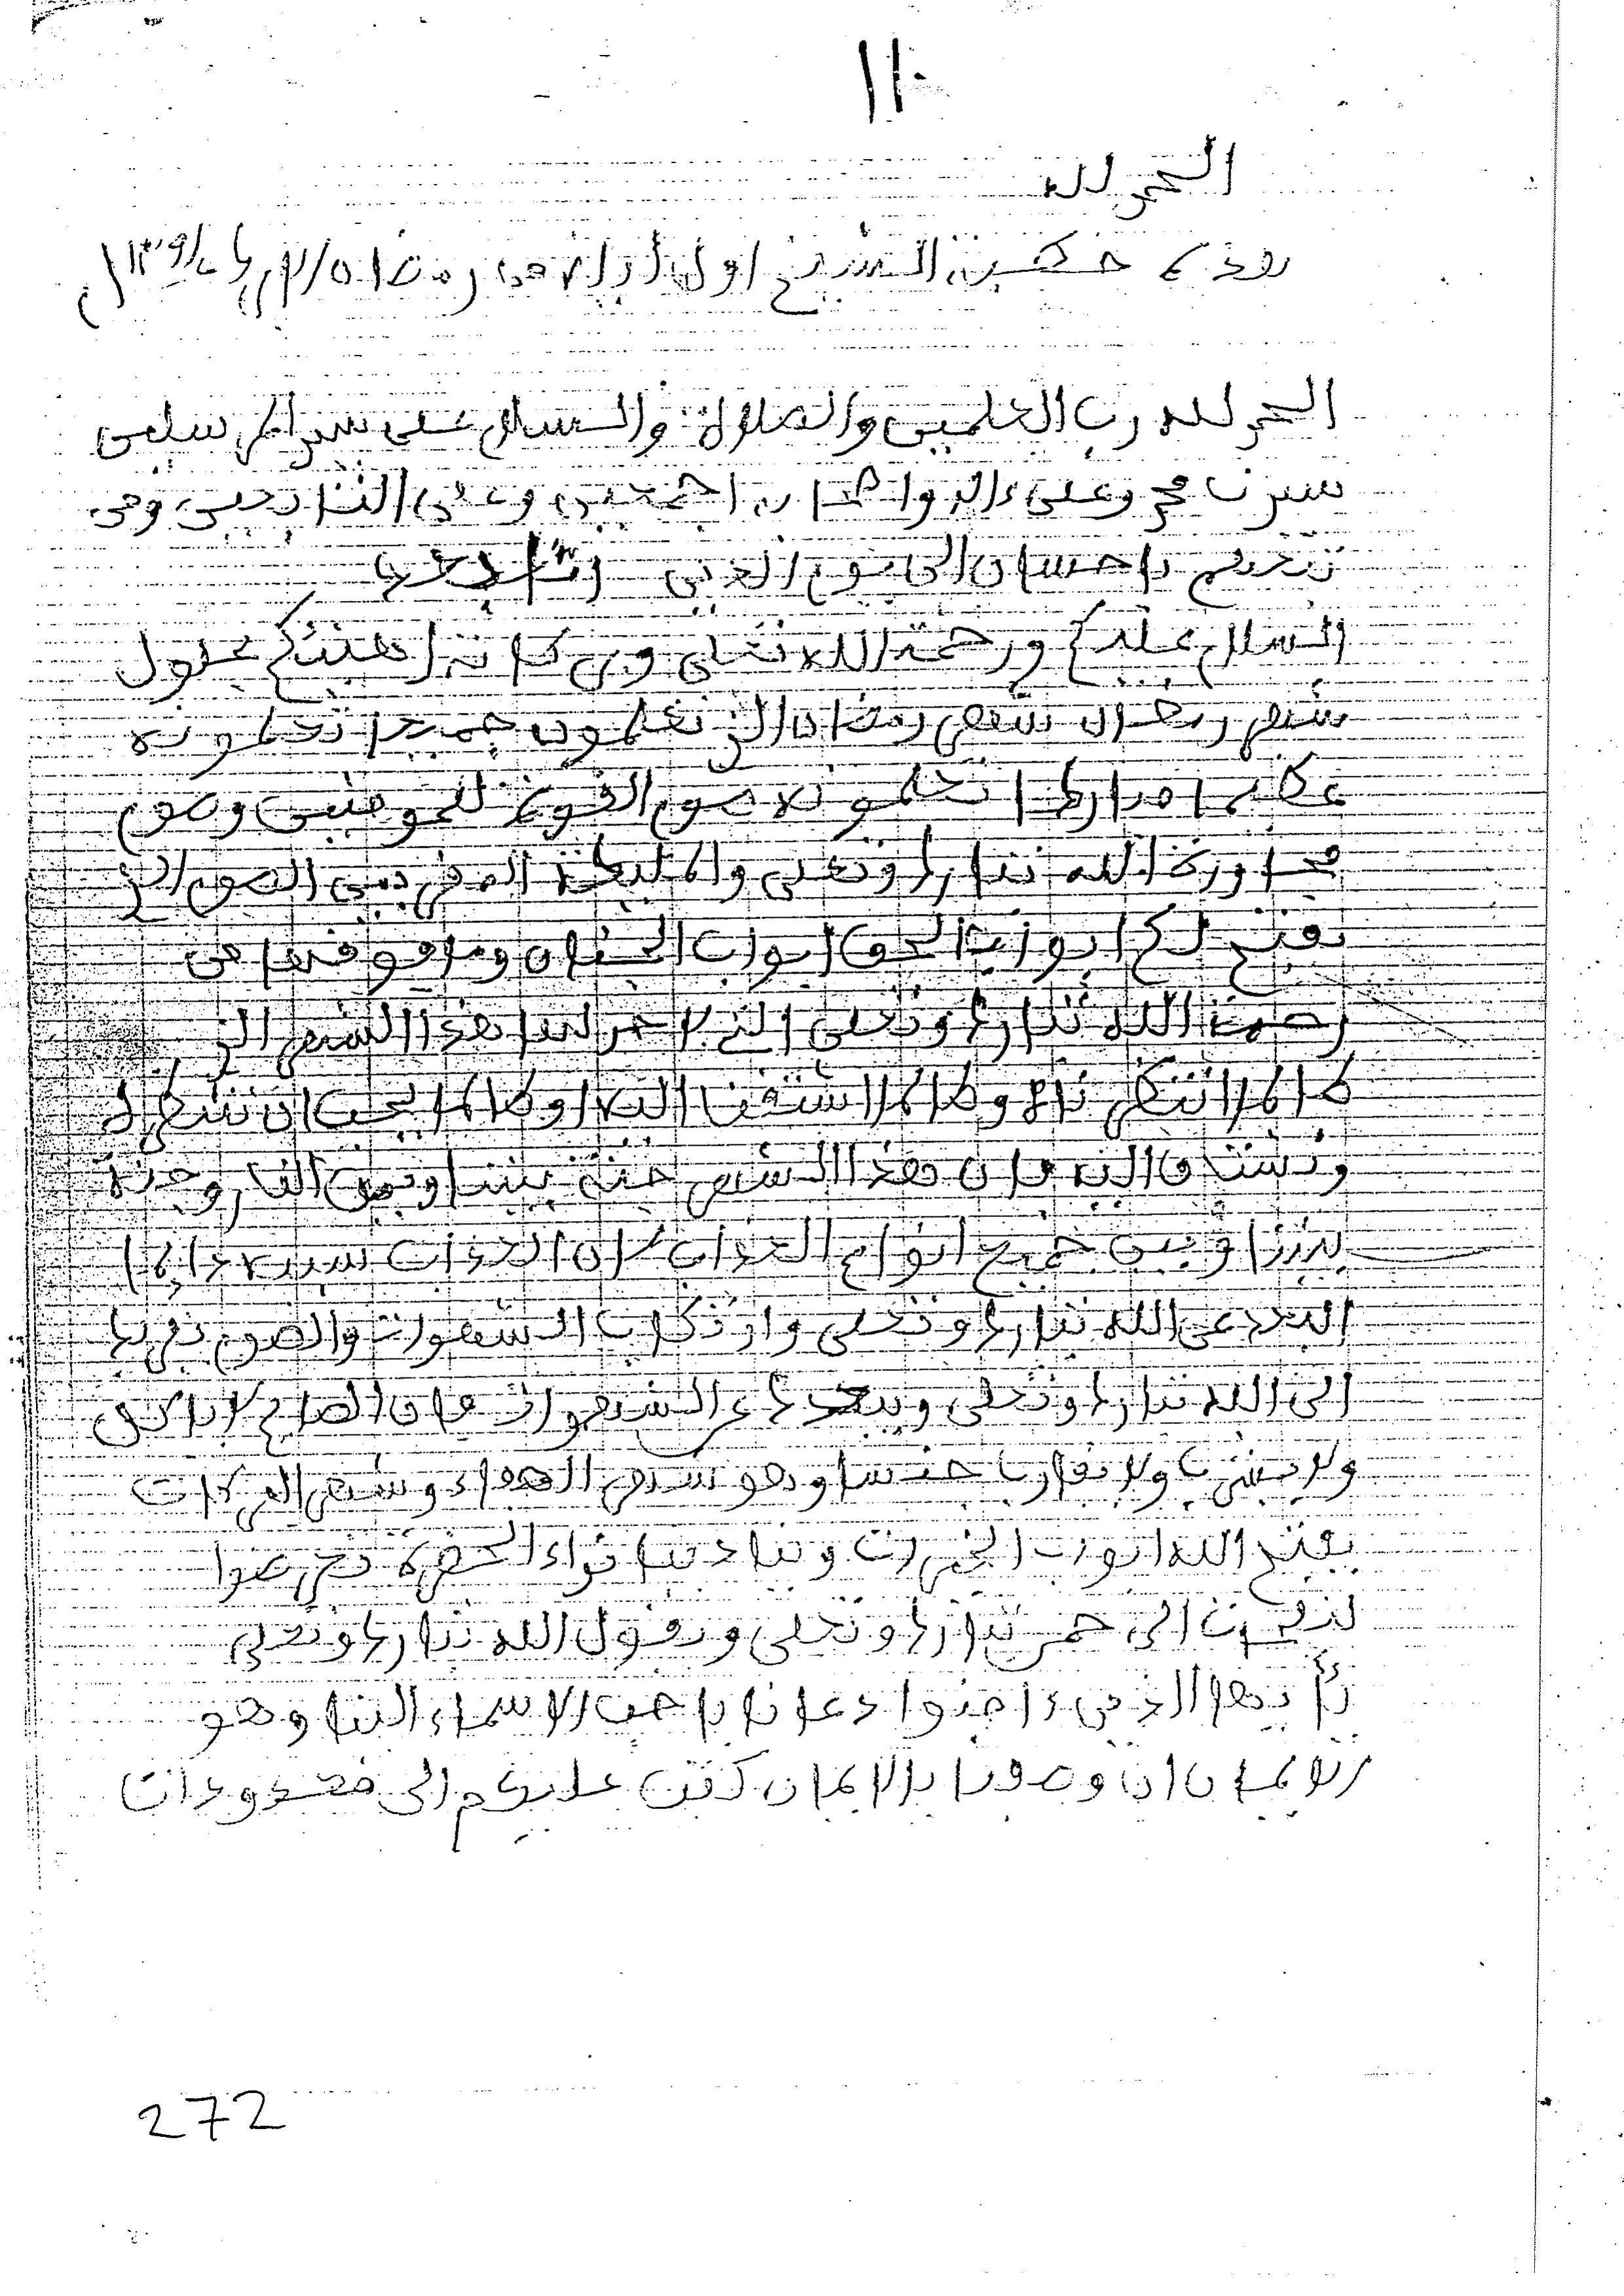 ١١٠
الحمد لله
هذه خطبة الشيخ اول ليلة من رمضان
الحمد لله رب العلمين والصلاة والسلام على سيد المرسلين
سيدنا محمد وعلى ءاله واصحابه اجمعين وعلى التابعين ومن
تبعهم باحسان الى يوم الدين اما بعد
السلام عليكم ورحمة الله تعلى وبركاته اهنئكم بحلول
شهر رمضان شهر رمضان الذي تعلمون جميعا تجعلونه
عظيما مباركا تجعلونه صوم القوة للمومنين وصوم
مجاورة الله تبارك وتعلى والملائكة المقربين الصوم الذي
يفتح لكم ابواب الحق ابواب الجنان وما فوقها من
رحمة الله تبارك وتعلى التي لا حد لها هذا الشهر الذي
طالما انتظرناه وطالما اشتقنا اليه وطالما يجب ان نشكر له
ونشتاق اليه فان هذا الشهر جنة بيننا وبين النار وجنة
بيننا وبين جميع انواع العذاب لان العذاب سببه دائما
البعد عن الله تبارك وتعلى وارتكاب الشهوات والصوم يقربنا
الى الله تبارك وتعلى ويبعدنا عن الشهوات فان الصائم لا ياكل
ولا يشرب ولا يقارب جنسا وهو شهر الهداء وشهر البركات
يفتح الله ابواب الخيرات وينادينا نداء الحضرة تعرضوا
لنفحات الرحمن تبارك وتعلى ويقول الله تبارك وتعلى
يأيها الذين ءامنوا دعانا باحب الاسماء الينا وهو
الايمان ان وصفنا بالايمان كتب عليكم الى معدودات
272